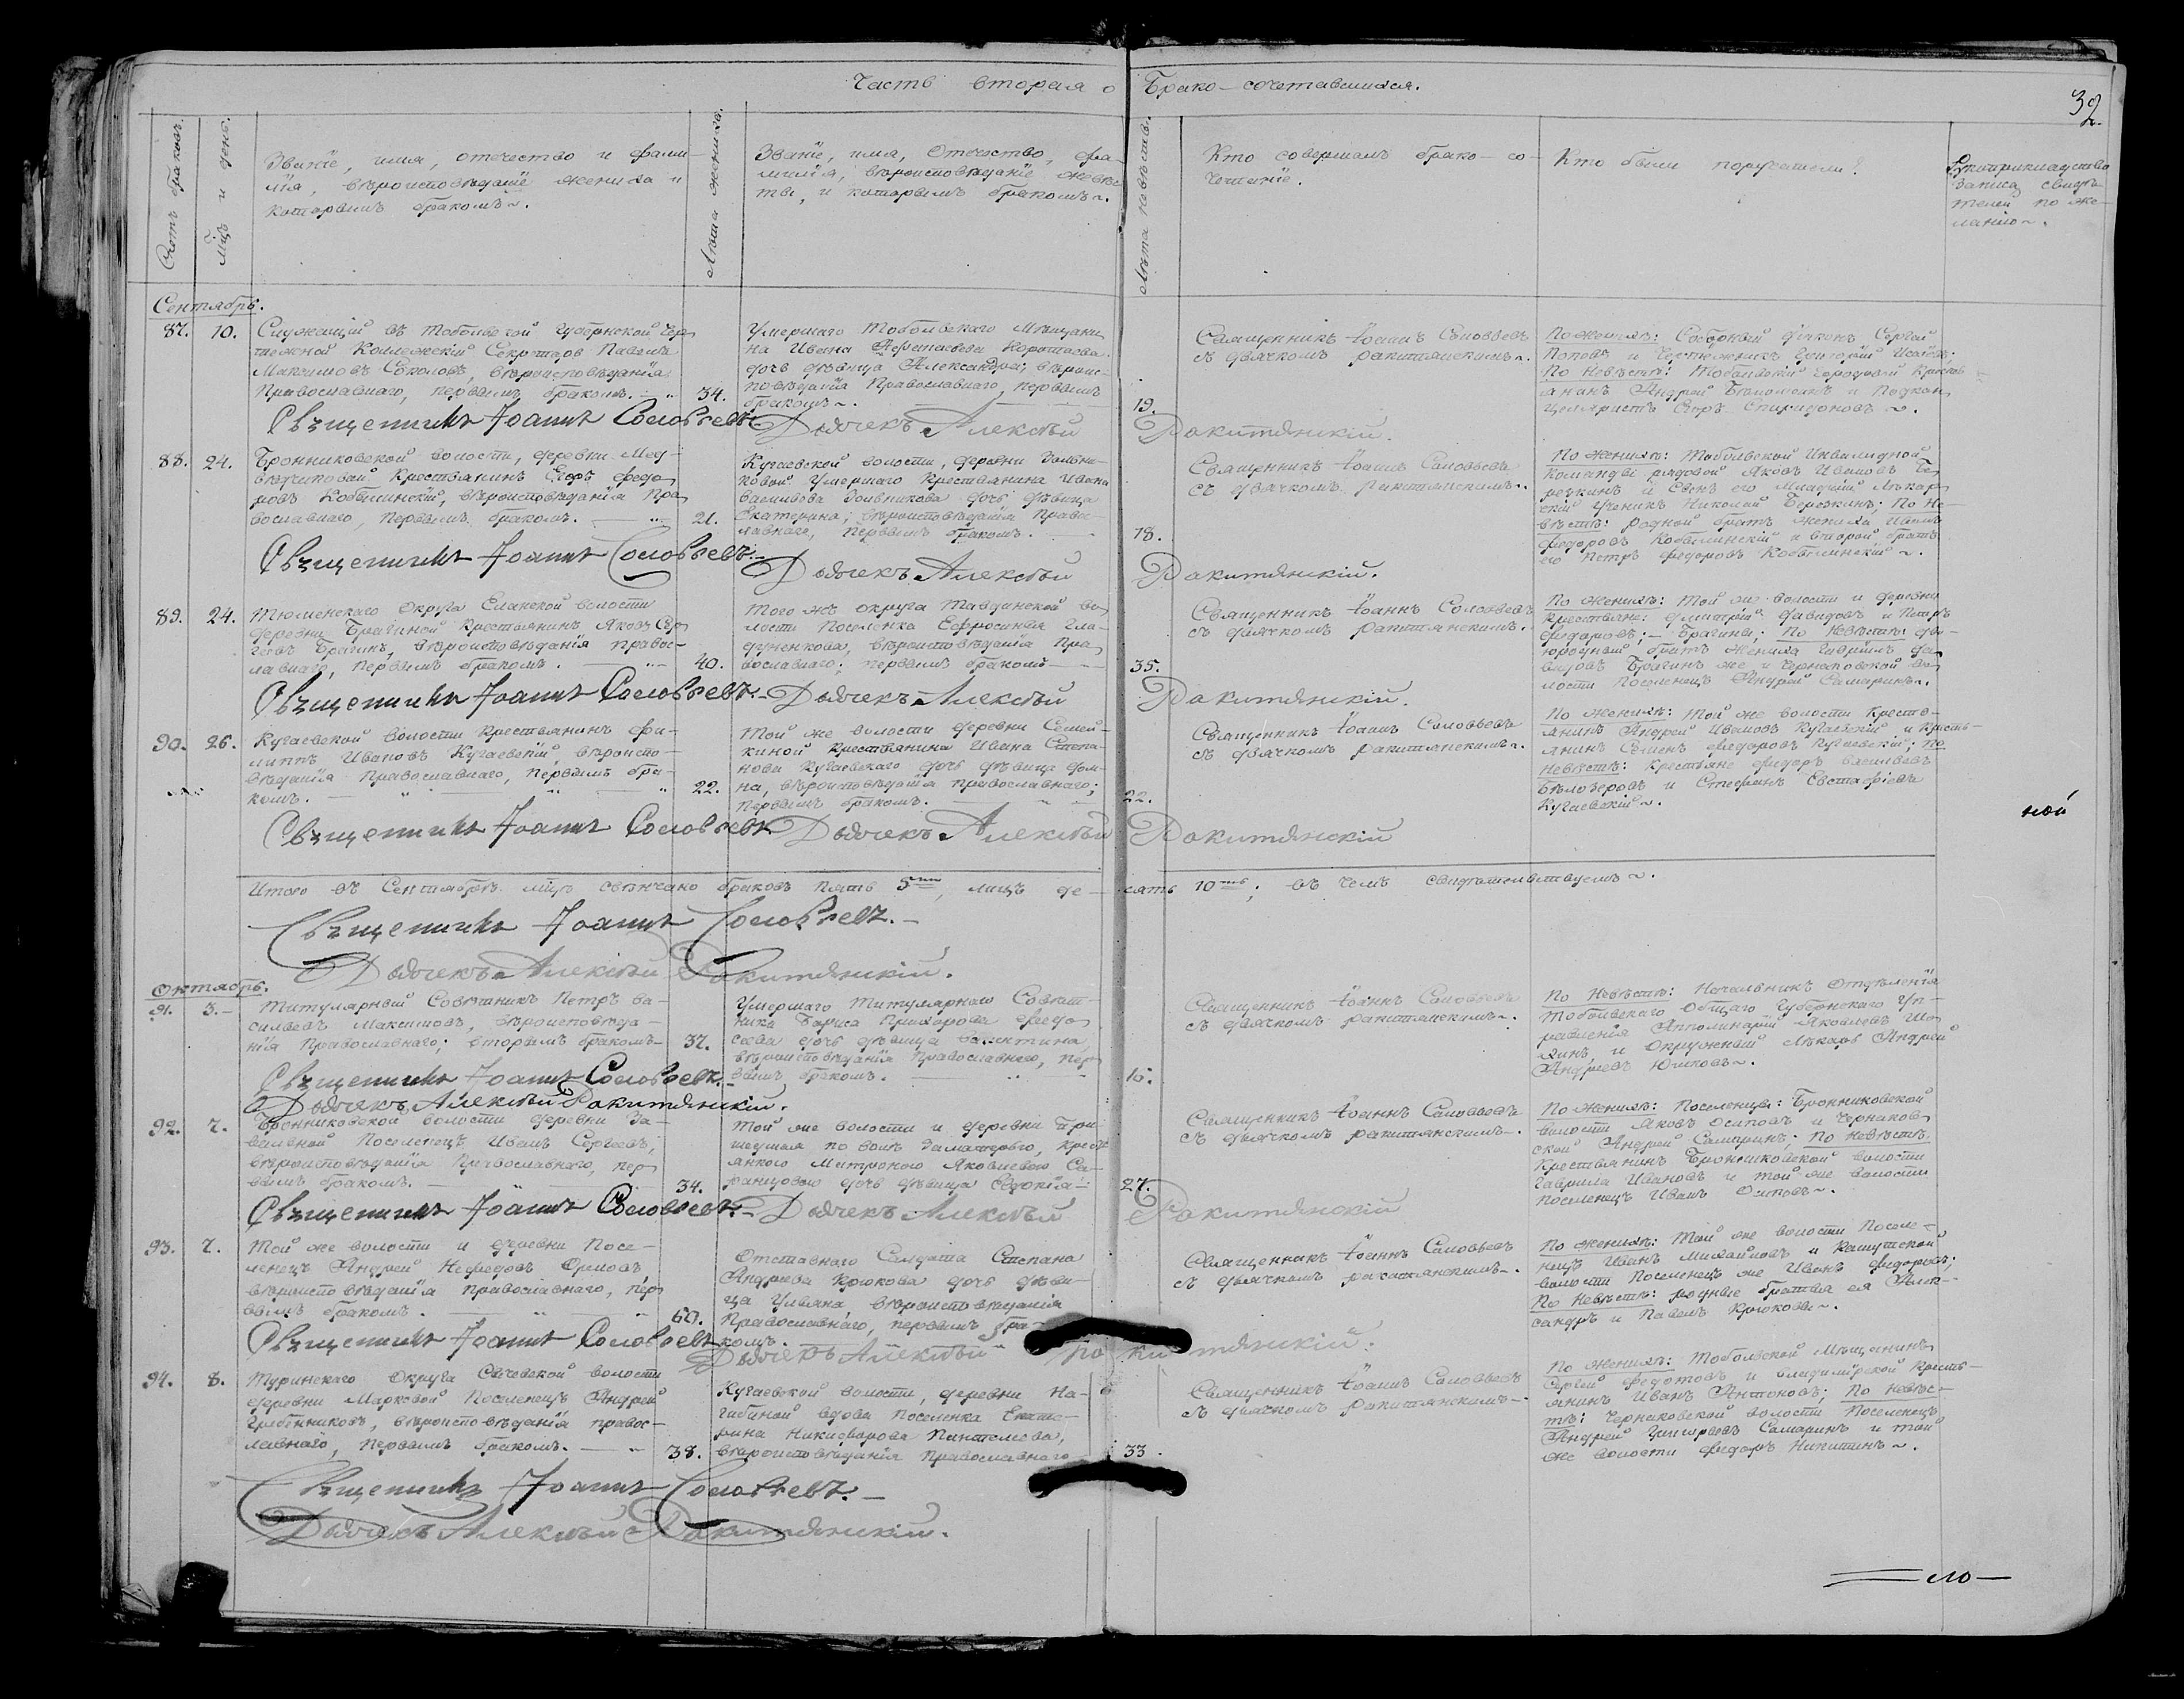 Часть вторая о Брако-сочетавшихся.
32.
Счетъ браковъ.
Мцъ и день.
Званіе, имя, отечество и фами-
лія, вѣроисповѣданіе жениха и
которымъ бракомъ.
Лѣта жениха.
Званіе, имя, Отечество, фа-
милія, вѣроисповѣданіе невѣс-
ты, и которымъ бракомъ.
Лѣта невѣсты.
Кто совершалъ брако-со-
четаніе.
Кто были поручатели?
Рукоприкладство
записи свидѣ-
телей по же-
ланію.
Сентябрь.
87. 10. Служащій въ Тобольской Губернской Чер-
тежной Коллежскій Секретарь Павелъ
Максимовъ Соколовъ, вѣроисповѣданія
Православнаго, первымъ бракомъ. 34.
Умершаго Тобольскаго Мѣщани-
на Ивана
дочь дѣвица Александра, вѣроис-
повѣданія Православнаго, первымъ
бракомъ. 19.
Священникъ Іоаннъ Соловьевъ
съ дьячкомъ Ракитянскимъ.
По женихѣ: Соборный Сергей
Поповъ и Чертежникъ Григорій
По Невѣстѣ: Тобольскій городовой Крестья-
нинъ Андрей и Подкан-
целяристъ Егоръ Спиридоновъ.
Священникъ Іоаннъ Соловьевъ Дьячекъ Алексѣй Ракитянскій.
88. 24. Бронниковской волости, деревни Мед-
вѣдчиковой Крестьянинъ Егоръ Федо-
ровъ Кобылинскій, вѣроисповѣданія Пра-
вославнаго, первымъ бракомъ. 21.
Кугаевской волости, деревни
умершаго Крестьянина Ивана
Васильева дочь дѣвица
Екатерина; вѣроисповѣданія Право-
славнаго, первымъ бракомъ. 18.
Священникъ Іоаннъ Соловьевъ
съ дьячкомъ Ракитянскимъ.
По женихѣ: Тобольской Инвалидной
Команды рядовой Яковъ Ивановъ Бе-
резкинъ и Сынъ его Младшій Лѣкар-
скій ученикъ Николай Березкинъ; По Не-
вѣстѣ: родной братъ жениха Иванъ
Федоровъ Кобылинскій и второй братъ
его Петръ Федоровъ Кобылинскій.
Священникъ Іоаннъ Соловьевъ. Дьячекъ Алексѣй Ракитянскій.
89. 24. Тюменскаго Округа Еланской волости
деревни Брагиной Крестьянинъ Яковъ Сер-
геевъ Брагинъ, вѣроисповѣданія правос-
лавнаго, первымъ бракомъ. 40.
Того жъ округа Тавдинской во-
лости Поселенка Ефросинья Гла-
дченкова, вѣроисповѣданія Пра-
вославнаго; первымъ бракомъ 35.
Священникъ Іоаннъ Соловьевъ
съ дьячкомъ Ракитянскимъ.
По женихѣ: Той же волости и деревни
Крестьяне: Дмитрій Давидовъ и Петръ
Федоровъ; Брагины; По Невѣстѣ: дво-
юродный братъ жениха Гаврилъ Да-
видовъ Брагинъ же и Черноковской во-
лости Поселенецъ Андрей Самаринъ.
Священникъ Іоаннъ Соловьевъ. Дьячекъ Алексѣй Ракитянскій.
90. 26. Кугаевской волости Крестьянинъ Фи-
липпъ Ивановъ Кугаевскій, вѣроиспо-
вѣданія Православнаго, первымъ бра-
комъ. 22.
Той же волости деревни Семей-
киной Крестьянина Ивана Степа-
нова Кугаевскаго дочь дѣвица Дом-
на, вѣроисповѣданія православнаго;
первымъ бракомъ. 22.
Священникъ Іоаннъ Соловьевъ
съ дьячкомъ Ракитянскимъ.
По женихѣ: Той же волости Кресть-
янинъ Андрей Ивановъ Кугаевскій и Кресть-
янинъ Семенъ Федоровъ Кугаевскій; По
Невѣстѣ: Крестьяне Федоръ Васильевъ
Бѣлозеровъ и Стефанъ Евстафіевъ
Кугаевскій.
ной
Священникъ Іоаннъ Соловьевъ Дьячекъ Алексѣй Ракитянскій
Итого въ Сентябрѣ мцѣ свѣнчано браковъ пять 5ть, лицъ де-сять 10ть; въ чемъ свидѣтельствуемъ.
Священникъ Іоаннъ Соловьевъ.
Дьячекъ Алексѣй Ракитянскій.
Октябрь.
91. 3. Титулярный Совѣтникъ Петръ Ва-
сильевъ Максимовъ, вѣроисповѣда-
нія Православнаго; вторымъ бракомъ 37.
Умершаго Титулярнаго Совѣт-
ника Бориса Прохорова Федо-
сѣева дочь дѣвица Валентина,
вѣроисповѣданія Православнаго, пер-
вымъ бракомъ. 16.
Священникъ Іоаннъ Соловьевъ
съ дьячкомъ Ракитянскимъ.
По Невѣстѣ: Начальникъ Отдѣленія
Тобольскаго Общаго Губернскаго Уп-
равленія Апполинарій Яковлевъ
и Окружный Лѣкарь Андрей
Андреевъ Юшковъ.
Священникъ Іоаннъ Соловьевъ.
Дьячекъ Алексѣй Ракитянскій.
92. 7. Бронниковской волости деревни За-
вальной Поселенецъ Иванъ Сергеевъ,
вѣроисповѣданія Православнаго, пер-
вымъ бракомъ. 34.
Той же волости и деревни при-
шедшая по волѣ за матерью, кресть-
янкою Яковлевою Са-
ранцовою дочь дѣвица Евдокія 27.
Священникъ Іоаннъ Соловьевъ
съ дьячкомъ Ракитянскимъ.
По женихѣ: Поселенцы: Бронниковской
волости Яковъ Осиповъ и Черноков-
ской Андрей Самаринъ; По Невѣстѣ:
Крестьянинъ Бронниковской волости
Гаврила Ивановъ и той же волости
поселенецъ Иванъ Осиповъ.
Священникъ Іоаннъ Соловьевъ. Дьячекъ Алексѣй Ракитянскій
93. 7. Той же волости и деревни Посе-
ленецъ Андрей Нефедовъ Орловъ,
вѣроисповѣданія православнаго, пер-
вымъ бракомъ. 60.
Отставнаго Солдата Степана
Андреева Крюкова дочь дѣви-
ца Ульяна, вѣроисповѣданія
Православнаго, первымъ бра-
комъ.
Священникъ Іоаннъ Соловьевъ
съ дьячкомъ Ракитянскимъ.
По женихѣ: Той же волости Поселе-
нецъ Иванъ Михайловъ и
волости Поселенецъ же Иванъ Федоровъ;
По Невѣстѣ: родные братья ея Алек-
сандръ и Павелъ Крюковы.
Священникъ Іоаннъ Соловьевъ
Дьячекъ Алексѣй Ракитянскій.
94. 8. Туринскаго Округа волости
деревни Марковой Поселенецъ Андрей
вѣроисповѣданія правос-
лавнаго, первымъ бракомъ. 38.
Кугаевской волости, деревни На-
гибиной вдова Поселенка Екате-
рина Никифорова Пантелеева,
вѣроисповѣданія Православнаго 33.
Священникъ Іоаннъ Соловьевъ
съ дьячкомъ Ракитянскимъ
По женихѣ: Тобольской Мѣщанинъ
Сергей Федотовъ и Кресть-
янинъ Иванъ Антоновъ; По Невѣс-
тѣ: Черноковской волости Поселенецъ
Андрей Григорьевъ Самаринъ и той
же волости Федоръ Никитинъ.
Священникъ Іоаннъ Соловьевъ.
Дьячекъ Алексѣй Ракитянскій.